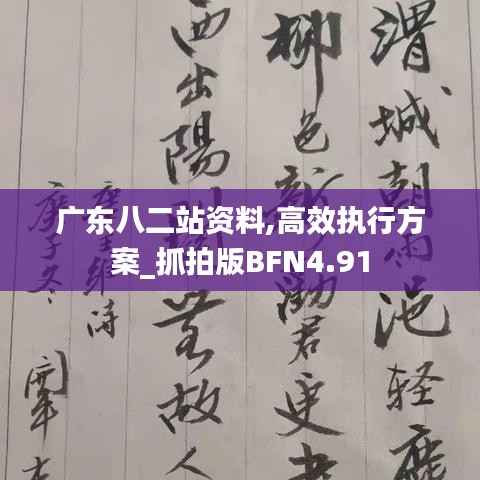 广东八二站资料,高效执行方
案_抓拍版BFN4.91
渭城朝雨浥轻
柳色新 君更
西出陽 无故人
诗
庚子冬